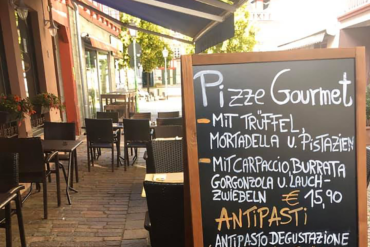 Pizze Gourmet
- MIT TRÜFFEL,
MORTADELLA U. PISTAZIEN
- MIT CARPACCIO, BURRATA
GORGONZOLA U. LAUCH-
ZWIEBELN € 15,90
ANTIPASTI
ANTIPASTO DEGUSTAZIONE